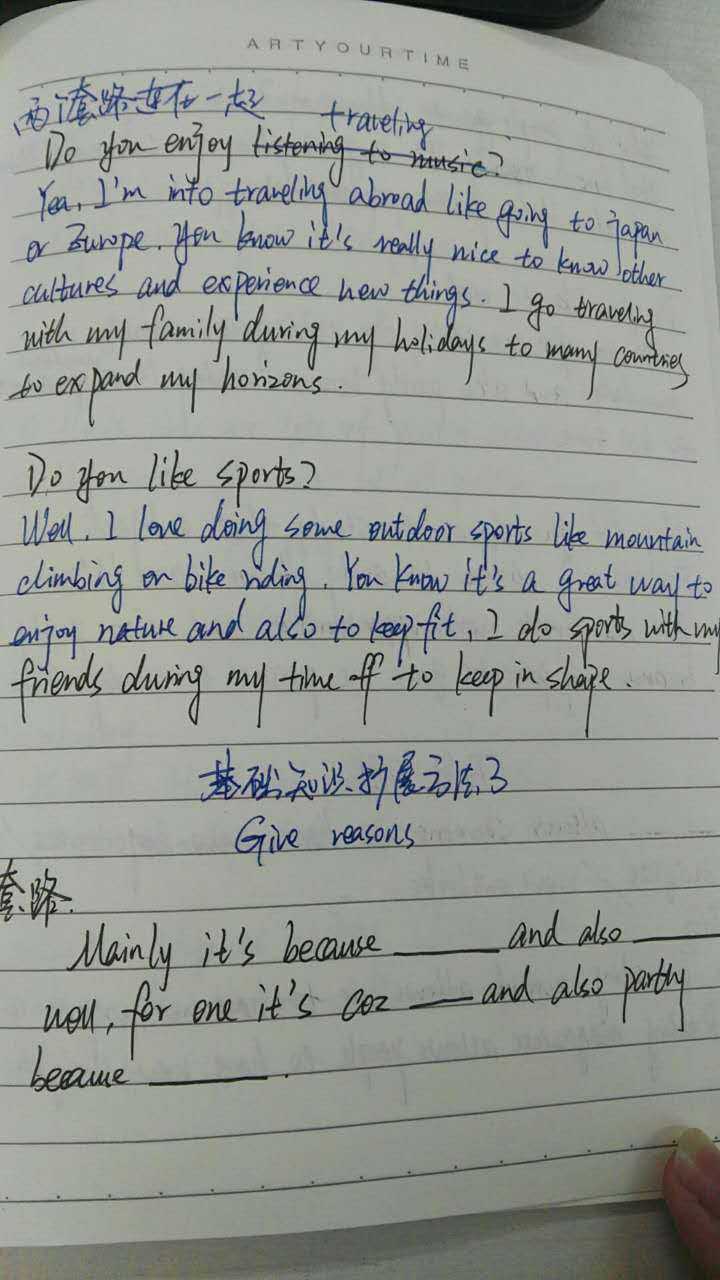 ARTYOURTIME
两个套路连在一起 traveling
Do you enjoy listening to music?
Yea, I'm into traveling abroad like going to japan
or Europe. You know it's really nice to know other
cultures and experience new things. I go traveling
with my family during my holidays to many countries
to expand my horizons.
Do you like sports?
Well, I love doing some outdoor sports like mountain
climbing or bike riding. You know it's a great way to
enjoy nature and also to keep fit, I do sports with my
friends during my time off to keep in shape.
基础知识扩展方法3
Give reasons
套路.
Mainly it's because ______ and also ______
well, for one it's coz ____ and also partly
because ________.